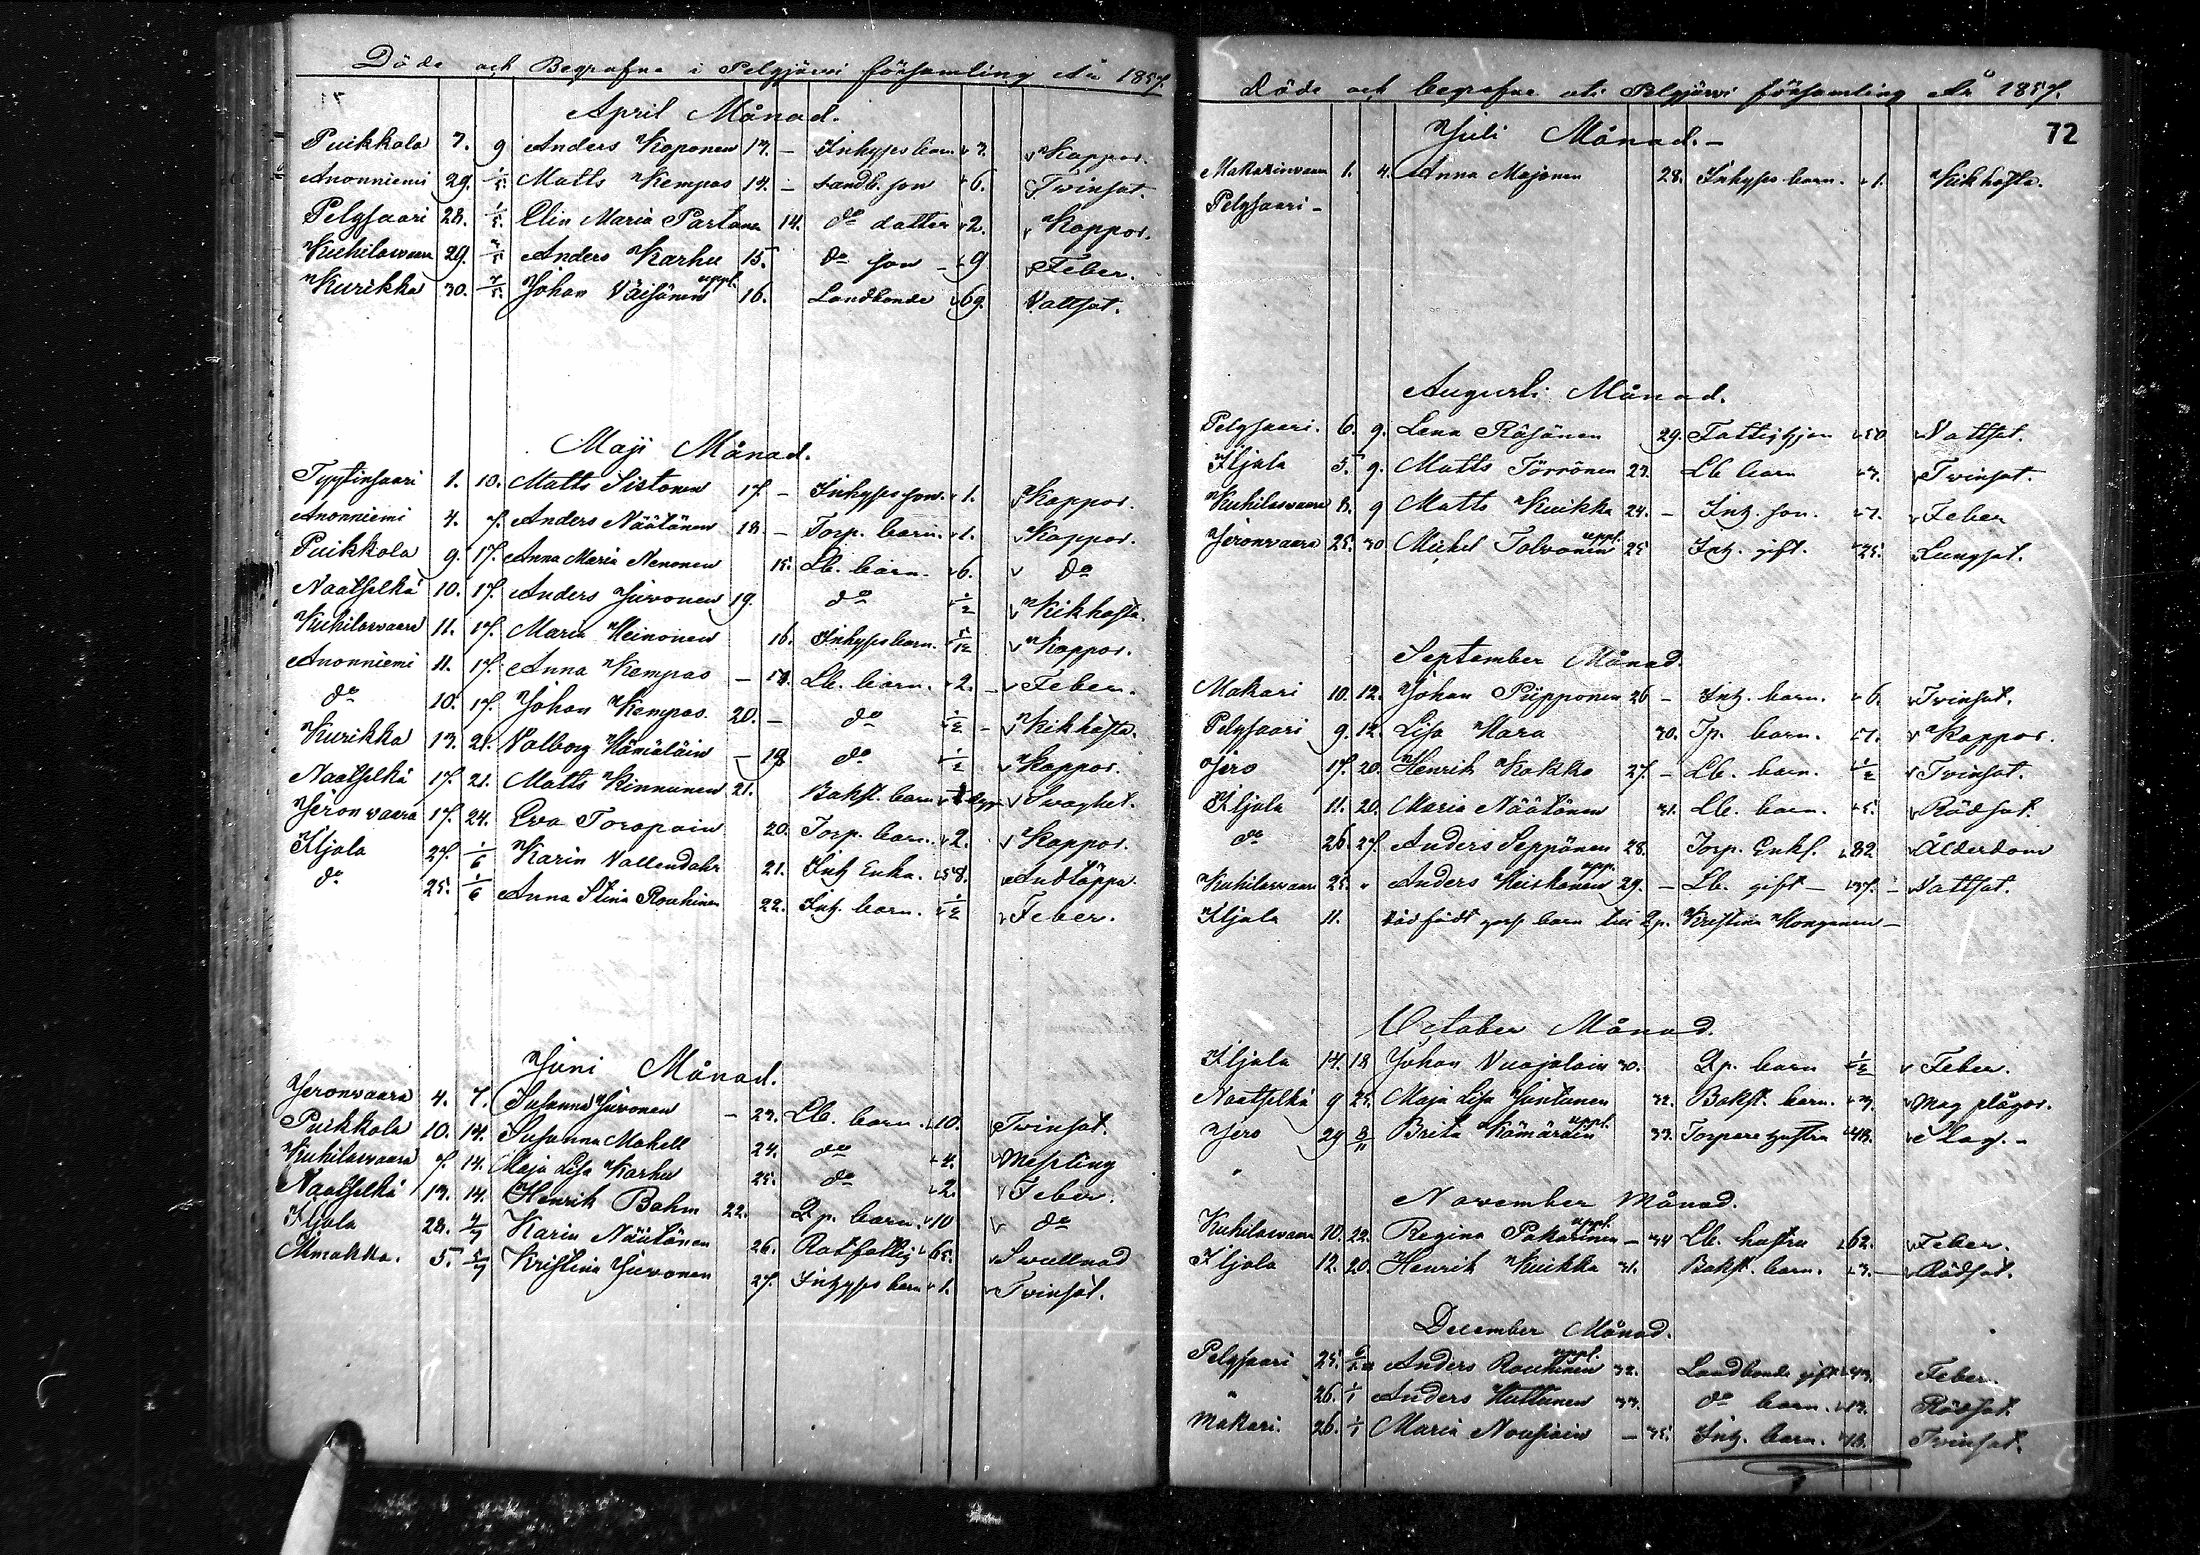 Döde och Begrafne i Pelgjärvi församling År 1857.
April Månad.
Puikkola 7. 9 Anders Koponen 13. – Inhyses barn 3. Koppor.
Anonniemi 29. 1/5 Matts Kempas 14. – Landb. son 6. Tvinsot.
Pelgjaari 28. 1/5 Elin Maria Partanen 14. do dotter 2. Koppor.
Kuhilasvaara 29. 3/5 Anders Karhu 15. do son – 9 Feber.
Kurikka 30. 7/5 Johan Väisänen uppl. 16. Landbonde 69. Vattsot.
Maji Månad.
Tyytinsaari 1. 10. Matts Sistonen 17. – Inhyses son 1. Koppor.
Anonniemi 4. 7. Anders Näätänen 18. – Torp. barn. 1. Koppor.
Puikkola 9. 17. Anna Maria Nenonen 15. Lb. barn. 6. do
Naatselkä 10. 17. Anders Juvonen 19. do 1/2 Kikhosta.
Kuhilasvaara 11. 17. Maria Heinonen 16. Inhyses barn. 5/12 Koppor.
Anonniemi 11. 17. Anna Kempas – 17. Lb. barn. 2. – Feber.
do 10. 17. Johan Kempas. 20. – do 1/2 – Kikhosta.
Kurikka 13. 21. Valborg Hämäläin – 18 do 1/2 Koppor.
Naatselkä 17. 21. Matts Kinnunen 21. Bakst. barn Svaghet.
Jeronvaara 17. 24. Eva Toropain 20. Torp. barn. 2. Koppor.
Iljala 27. 1/6 Karin Vallendahr 21. Inh. Enka. 58. Andtäppa.
do 25. 1/6 Anna Stina Rouhinen 22. Inh. barn. 1/2 Feber.
Juni Månad.
Jeronvaara 4. 7. Susanna Juvonen – 23. Lb. barn. 10. Tvinsot.
Puikkola 10. 14. Susanna Makell 24. do 4. Messling
Kuhilasvaara 7. 14. Maja Lisa Karhu 25. do 2. Feber.
Naatselkä 13. 14. Henrik Bohm 22. Lp. barn. 10 do
Iljala 28. 4/7 Karin Näätänen 26. Rotfattig 65. Svullnad
Mmakka. 5. 5/7 Kristina Juvonen 27. Inhyses barn 1. Tvinsot.
Döde och begrafne uti Pelgjärvi församling År 1857.
72
Juli Månad. –
Makarinvaara 1. 4. Anna Majonen 28. Inhyses barn. 1. Kikhosta.
Pelgjaari –
Augusti Månad.
Pelgjaari. 6. 9. Lena Räsänen 29. Fattighjon 50 Vattsot.
Iljala 5. 9. Matts Törrönen 23. Lb barn 3. Tvinsot.
Kuhilasvaara 8. 9 Matts Kuikka 24. – Inh. son. 7. Feber
Jeronvaara 25. 30 Mickel Tolvonen uppl. 25 Inh. gift. 25. Lungsot.
September Månad.
Makari 10. 12. Johan Piipponen 26 – Inh. barn. 6. Tvinsot.
Pelgjaari 9. 12. Lisa Hara 30. Tp. barn. 7. Koppor.
Jero 17. 20. Henrik Kakko 27. – Lb. barn. 1/2 Tvinsot.
Iljala 11. 20. Maria Näätänen 31. Lb. barn. 5. Rödsot.
do 26. 27. Anders Seppänen 28. Torp. Enkl. 82 Ålderdom
Kuhilasvaara 25. " Anders Heiskanen upp. 29. – Lb. gift – 37. – Vattsot.
Iljala 11. Dödfödt barn till Lp. Kristina Hongonen –
October Månad.
Iljala 14. 18 Johan Vuojolain 30. Lp. barn 1/2 Feber.
Naatselkä 9 25. Maja Lisa Juntunen 32. Bakst. barn. 3. Mag plågor.
Jero 29 8/11 Brita Kämäräin uppl. 33. Torpare hustru 48. Slag. –
"
November Månad.
Kuhilasvaara 10. 22. Regina Pakarinen uppl. – 34 Lb. hustru 62. Feber.
Iljala 12. 20. Henrik Kuikka 31. Bakst. barn. 3. – Rödsot.
December Månad.
Pelgjaari 25. Anders Rouhinen uppl. 32. Landbonde gift 43. Feber.
" 26. 1/1 Anders Huttunen 33. do barn. 13. Rödsot.
Makari. 26. 1/1 Maria Nousiain – 35. Inh. barn. Tvinsot.